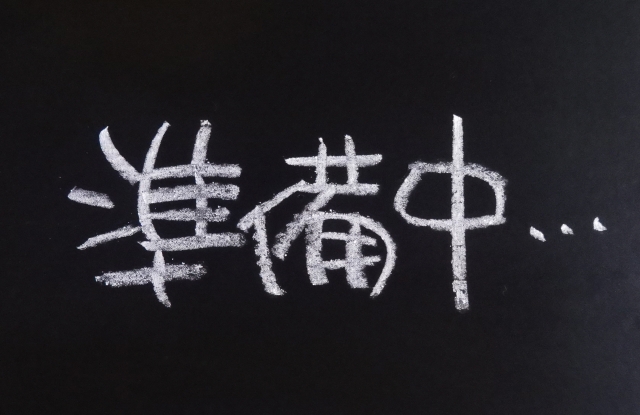 準備中...